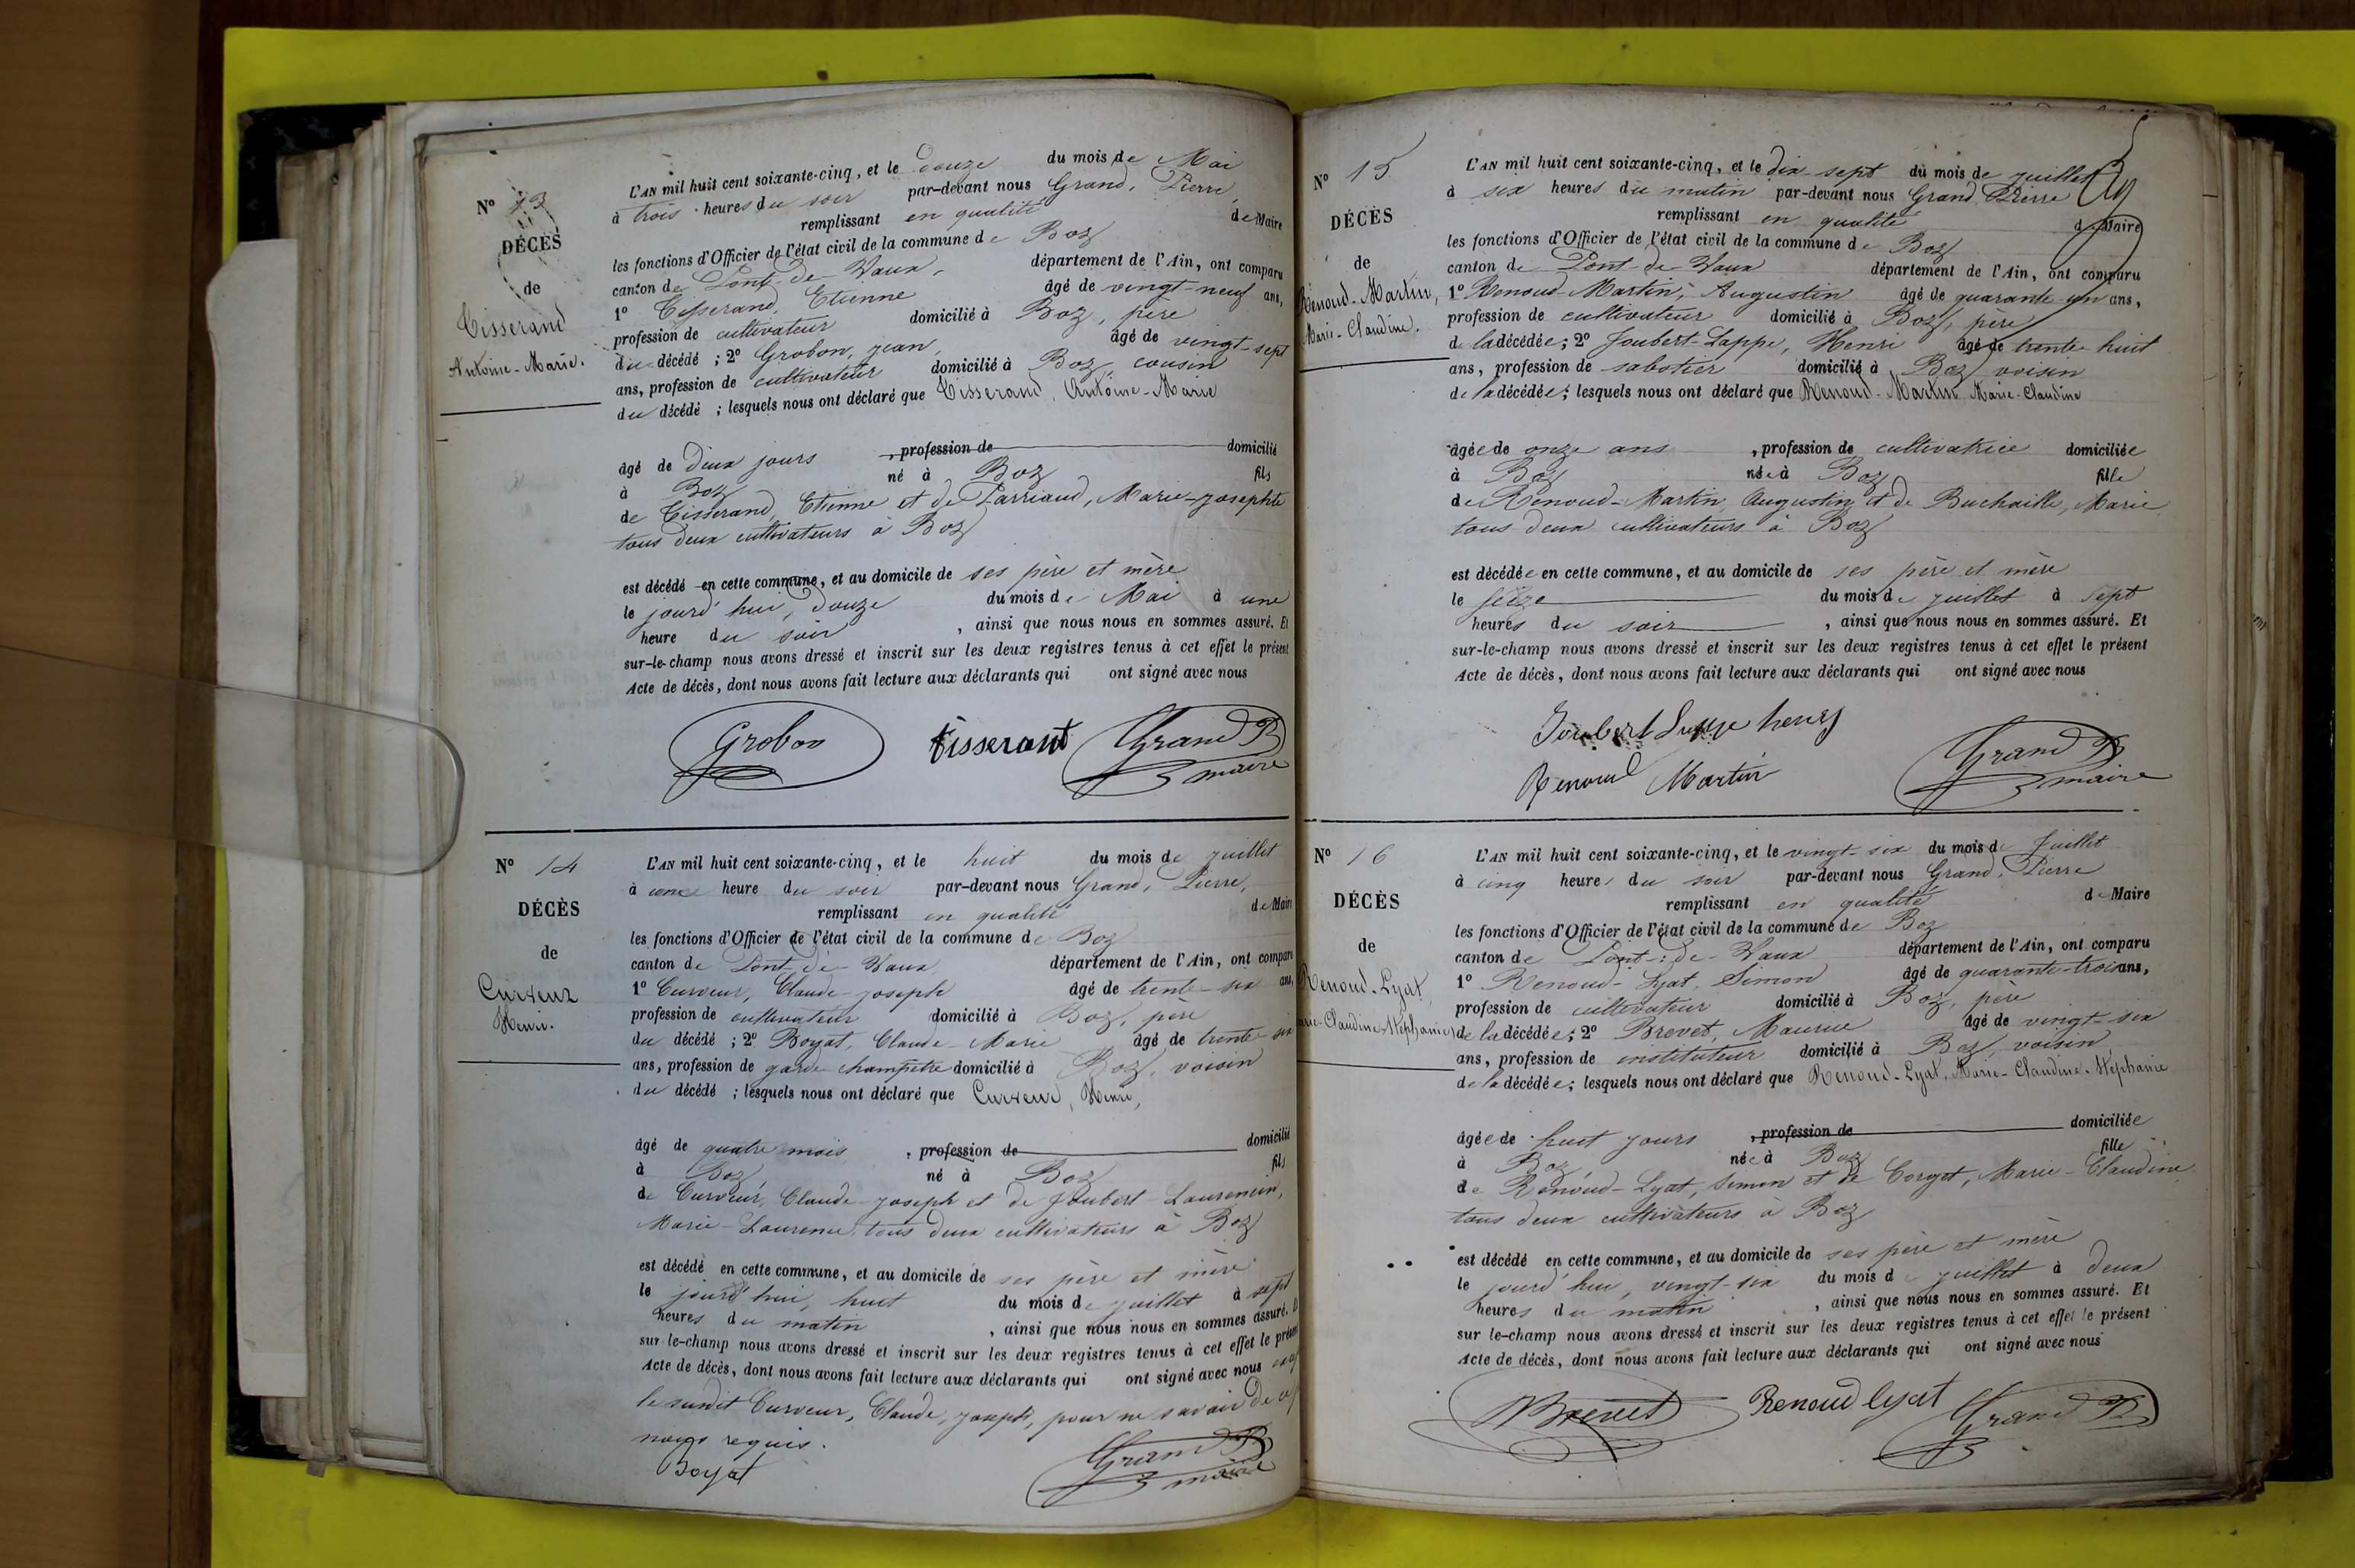 N° 13
DÉCÈS
de
Tisserand
Antoine-Marie.
L'AN mil huit cent soixante-cinq, et le douze du mois de Mai
à trois heures du soir par-devant nous Grand, Pierre,
remplissant en qualité de Maire
les fonctions d'Officier de l'état civil de la commune de Boz
canton de Pont-de-Vaux, département de l'Ain, ont comparu
1° Tisserand, Etienne âgé de vingt-neuf ans,
profession de cultivateur domicilié à Boz, père
du décédé ; 2° Grobon, jean, âgé de vingt-sept
ans, profession de cultivateur domicilié à Boz, cousin
du décédé ; lesquels nous ont déclaré que Tisserand, Antoine-Marie
âgé de deux jours , profession de domicilié
à Boz né à Boz fils
de Tisserand, Etienne et de Parriaud, Marie-josephte
tous deux cultivateurs à Boz
est décédé en cette commune, et au domicile de ses père et mère
le jourd'hui, douze du mois de Mai à une
heure du soir , ainsi que nous nous en sommes assuré. Et
sur-le-champ nous avons dressé et inscrit sur les deux registres tenus à cet effet le présent
Acte de décès, dont nous avons fait lecture aux déclarants qui ont signé avec nous
Grobon Tisserant Grand P
maire
N° 14
DÉCÈS
de
Curveur
Henri.
L'AN mil huit cent soixante-cinq, et le huit du mois de juillet
à une heure du soir par-devant nous Grand, Pierre,
remplissant en qualité de Maire
les fonctions d'Officier de l'état civil de la commune de Boz
canton de Pont-de-Vaux département de l'Ain, ont comparu
1° Curveur, Claude-joseph âgé de trente-six ans,
profession de cultivateur domicilié à Boz, père
du décédé ; 2° Boyat, Claude-Marie âgé de trente-six
ans, profession de garde-champêtre domicilié à Boz, voisin
du décédé ; lesquels nous ont déclaré que Curveur, Henri,
âgé de quatre mois , profession de domicilié
à Boz né à Boz fils
de Curveur, Claude-joseph et de Joubert-Laurencin,
Marie-Laurence, tous deux cultivateurs à Boz
est décédé en cette commune, et au domicile de ses père et mère
le jourd'hui, huit du mois de juillet à sept
heures du matin , ainsi que nous nous en sommes assuré. Et
sur le-champ nous avons dressé et inscrit sur les deux registres tenus à cet effet le présent
Acte de décès, dont nous avons fait lecture aux déclarants qui ont signé avec nous
le susdit Curveur, Claude, joseph, pour ne savoir de
nous requis.
Boyat Grand P
maire
N° 15
DÉCÈS
de
Renoud-Martin,
Marie-Claudine.
L'AN mil huit cent soixante-cinq, et le dix sept du mois de juillet
à six heures du matin par-devant nous Grand, Pierre
remplissant en qualité de Maire
les fonctions d'Officier de l'état civil de la commune de Boz
canton de Pont-de-Vaux département de l'Ain, ont comparu
1° Renoud-Martin, Augustin âgé de quarante-un ans,
profession de cultivateur domicilié à Boz, père
de la décédée ; 2° Joubert-Lappe, Henri âgé de trente-huit
ans, profession de sabotier domicilié à Boz voisin
de la décédée ; lesquels nous ont déclaré que Renoud-Martin Marie-Claudine
âgée de onze ans , profession de cultivatrice domiciliée
à Boz née à Boz fille
de Renoud-Martin, Augustin et de Buchaille, Marie
tous deux cultivateurs à Boz
est décédée en cette commune, et au domicile de ses père et mère
le seize du mois de juillet à sept
heures du soir , ainsi que nous nous en sommes assuré. Et
sur-le-champ nous avons dressé et inscrit sur les deux registres tenus à cet effet le présent
Acte de décès, dont nous avons fait lecture aux déclarants qui ont signé avec nous
Joubert Lappe henry
Renoud Martin Grand P
maire
N° 16
DÉCÈS
de
Renoud-Lyat,
Marie-Claudine-Stéphanie
L'AN mil huit cent soixante-cinq, et le vingt-six du mois de Juillet
à cinq heures du soir par-devant nous Grand, Pierre
remplissant en qualité de Maire
les fonctions d'Officier de l'état civil de la commune de Boz
canton de Pont-de-Vaux département de l'Ain, ont comparu
1° Renoud-Lyat, Simon âgé de quarante-trois ans,
profession de cultivateur domicilié à Boz, père
de la décédée ; 2° Brevet, Maurice âgé de vingt-six
ans, profession de instituteur domicilié à Boz, voisin
de la décédée ; lesquels nous ont déclaré que Renoud-Lyat, Marie-Claudine-Stéphanie
âgée de huit jours , profession de domiciliée
à Boz née à Boz fille
de Renoud-Lyat, Simon et de Corget, Marie-Claudine,
tous deux cultivateurs à Boz
est décédé en cette commune, et au domicile de ses père et mère
le jourd'hui, vingt-six du mois de juillet à deux
heures du matin , ainsi que nous nous en sommes assuré. Et
sur le-champ nous avons dressé et inscrit sur les deux registres tenus à cet effet le présent
Acte de décès, dont nous avons fait lecture aux déclarants qui ont signé avec nous
MBrevet Renoud lyat Grand P